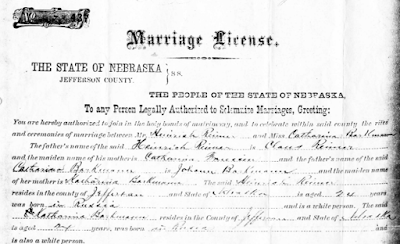 Marriage License.
THE STATE OF NEBRASKA } ss.
JEFFERSON COUNTY.
THE PEOPLE OF THE STATE OF NEBRASKA,
To any Person Legally Authorized to Solemnize Marriages, Greeting:
You are hereby authorized to join in the holy bonds of matrimony, and to celebrate within said county the rites
and ceremonies of marriage between Mr. Heinrich Reimer and Miss Catharina Barkmann
The father's name of the said Heinrich Reimer is Claus Reimer
and the maiden name of his mother is Catharina and the father's name of the said
Catharina Barkmann is Johann Barkmann and the maiden name
of her mother is Katharina Barkmann The said Heinrich Reimer
resides in the county of Jefferson and State of Nebraska is aged 24 years
was born in Russia and is a white person. The said
Catharina Barkmann resides in the County of Jefferson and State of Nebraska
is aged years, was born in Russia and
is also a white person.